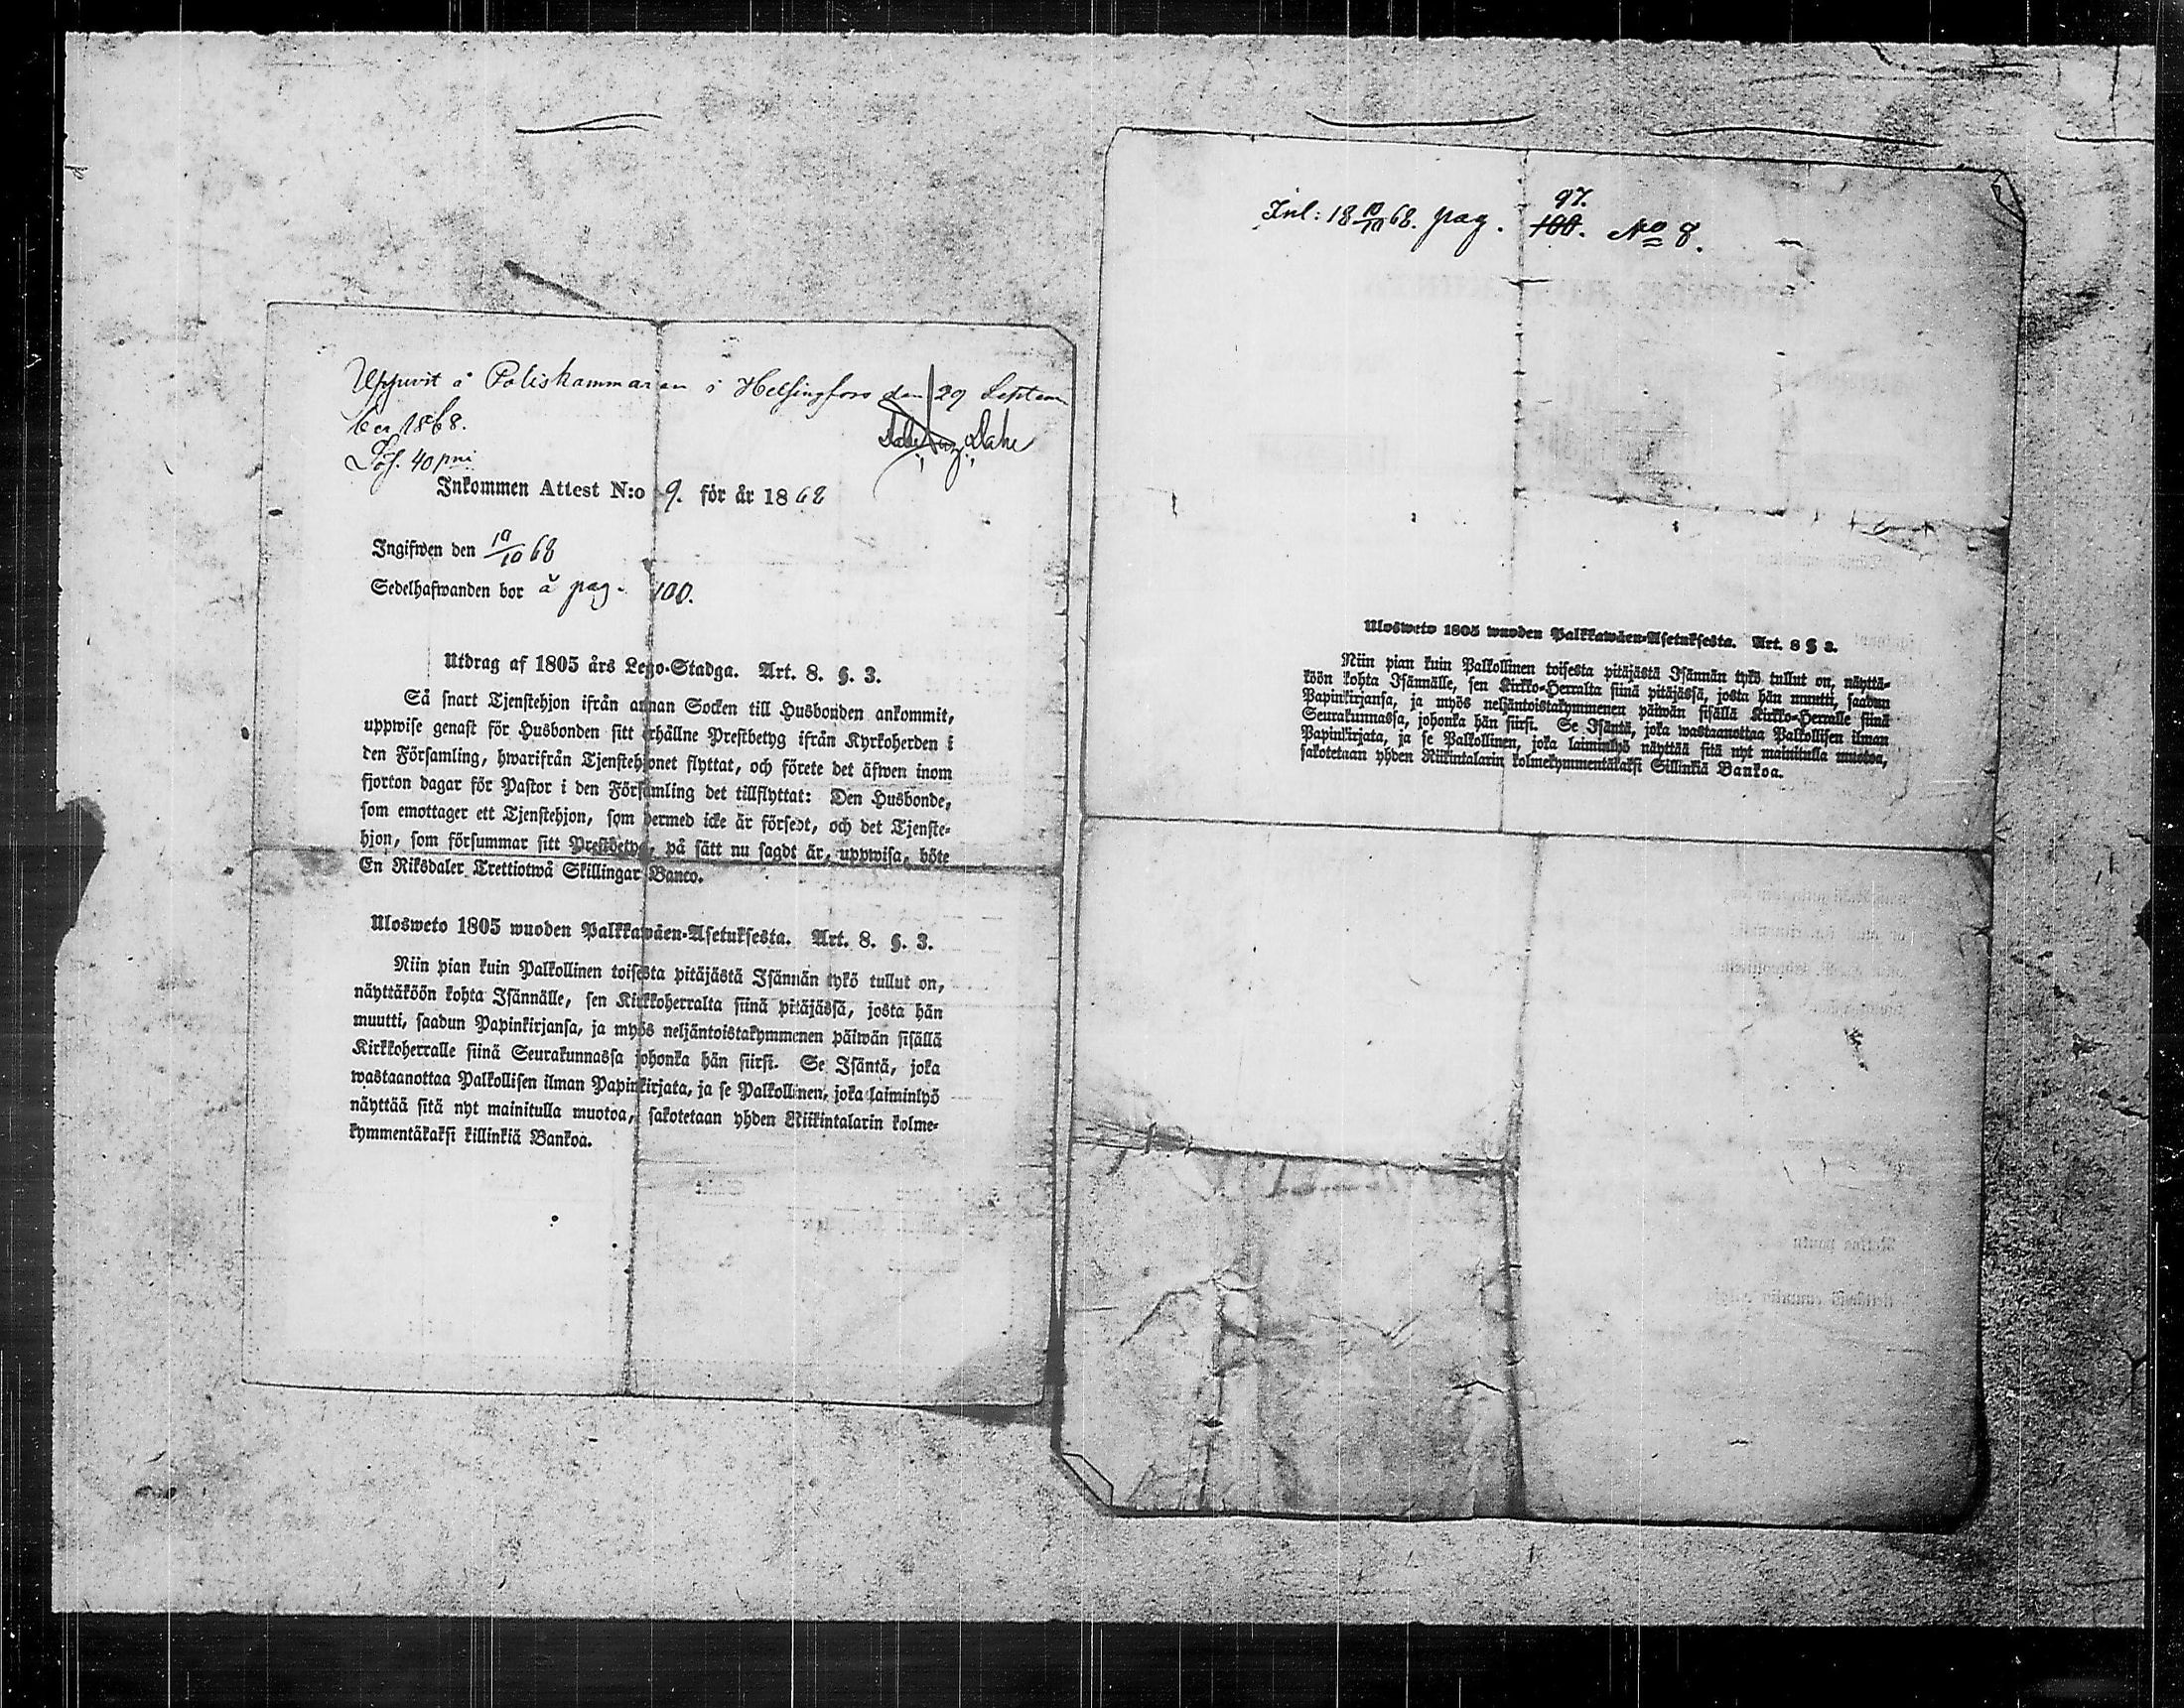 Uppvist å Poliskammaren i Helsingfors den 29 Septem
ber 1868.
Lös. 40 pni
Inkommen Attest N:o 9. för år 1868
Ingifwen den 10/10 68
Sedelhafwanden bor å pag. 100.
Utdrag af 1805 års Lego-Stadga. Art. 8. §. 3.
Så snart Tjenstehjon ifrån annan Socken till Husbonden ankommit,
uppwise genast för Husbonden sitt erhållne Prestbetyg ifrån Kyrkoherden i
den Församling, hwarifrån Tjenstehjonet flyttat, och förete det äfwen inom
fjorton dagar för Pastor i den Församling det tillflyttat: Den Husbonde,
som emottager ett Tjenstehjon, som dermed icke är försedt, och det Tjenste-
hjon, som försummar sitt Prestbetyg, på sätt nu sagdt är, uppwisa, böte
En Riksdaler Trettiotwå Skillingar Banco.
Ulosweto 1805 wuoden Palkkawäen-Asetuksesta. Art. 8. §. 3.
Niin pian kuin Palkollinen toisesta pitäjästä Isännän tykö tullut on,
näyttäköön kohta Isännälle, sen Kirkkoherralta siinä pitäjässä, josta hän
muutti, saadun Papinkirjansa, ja myös neljäntoistakymmenen päiwän sisällä
Kirkkoherralle siinä Seurakunnassa johonka hän siirsi. Se Isäntä, joka
wastaanottaa Palkollisen ilman Papinkirjata, ja se Palkollinen, joka laiminlyö
näyttää sitä nyt mainitulla muotoa, sakotetaan yhden Riikintalarin kolme-
kymmentäkaksi killinkiä Bankoa.
Inl: 18 10/10 68. pag. 100. 97. No 8.
Ulosweto 1805 wuoden Palkkawäen-Asetuksesta. Art. 8 § 3.
Niin pian kuin Palkollinen toisesta pitäjästä Isännän tykö tullut on, näyttä-
köön kohta Isännälle, sen Kirkko-Herralta siinä pitäjässä, josta hän muutti, saadun
Papinkirjansa, ja myös neljäntoistakymmenen päiwän sisällä Kirkko-Herralle siinä
Seurakunnassa, johonka hän siirsi. Se Isäntä, joka wastaanottaa Palkollisen ilman
Papinkirjata, ja se Palkollinen, joka laiminlyö näyttää sitä nyt mainitulla muotoa,
sakotetaan yhden Riikintalarin kolmekymmentäkaksi Sillinkiä Bankoa.